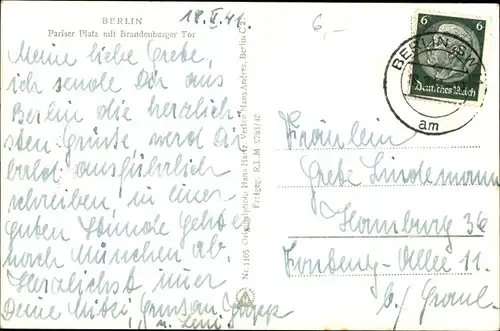 BERLIN
Pariser Platz mit Brandenburger Tor
18.V.41.
6,-
Meine liebe Grete,
ich sende Dir aus
Berlin die herzlich-
sten Grüße, werd Dir
bald ausführlich
schreiben, in einer
guten Stunde geht es
nach München ab.
Herzlichst immer
Deine Mitzi, Gruss an
u. Leni
Nr. 1105 Originalphoto Hans Hartz Verlag Hans Andres, Berlin
Freigeg. R.L.M
6 6
Deutsches Reich
BERLIN SW
am
Fräulein
Grete Lindemann
Hamburg 36
Fontenay-Allee 11.
b/